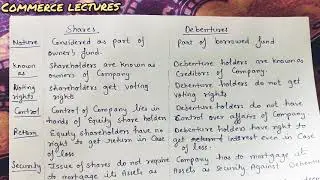 COMMERCE LECTURES
Shares Debentures
Nature Considered as part of owner's fund. Part of borrowed fund
Known as Shareholders are known as owners of Company Debenture holders are known as Creditors of Company.
Voting rights Shareholders get voting rights Debenture holders do not get voting rights
Control Control of Company lies in hands of Equity share holders Debenture holders do not have Control over affairs of Company
Return Equity shareholders have no right to get return in Case of loss. Debenture holders have right to get return interest even in Case of loss
Security Issue of shares do not require to mortgage its Assets as Company has to mortgage its Assets as Security Against Debentures